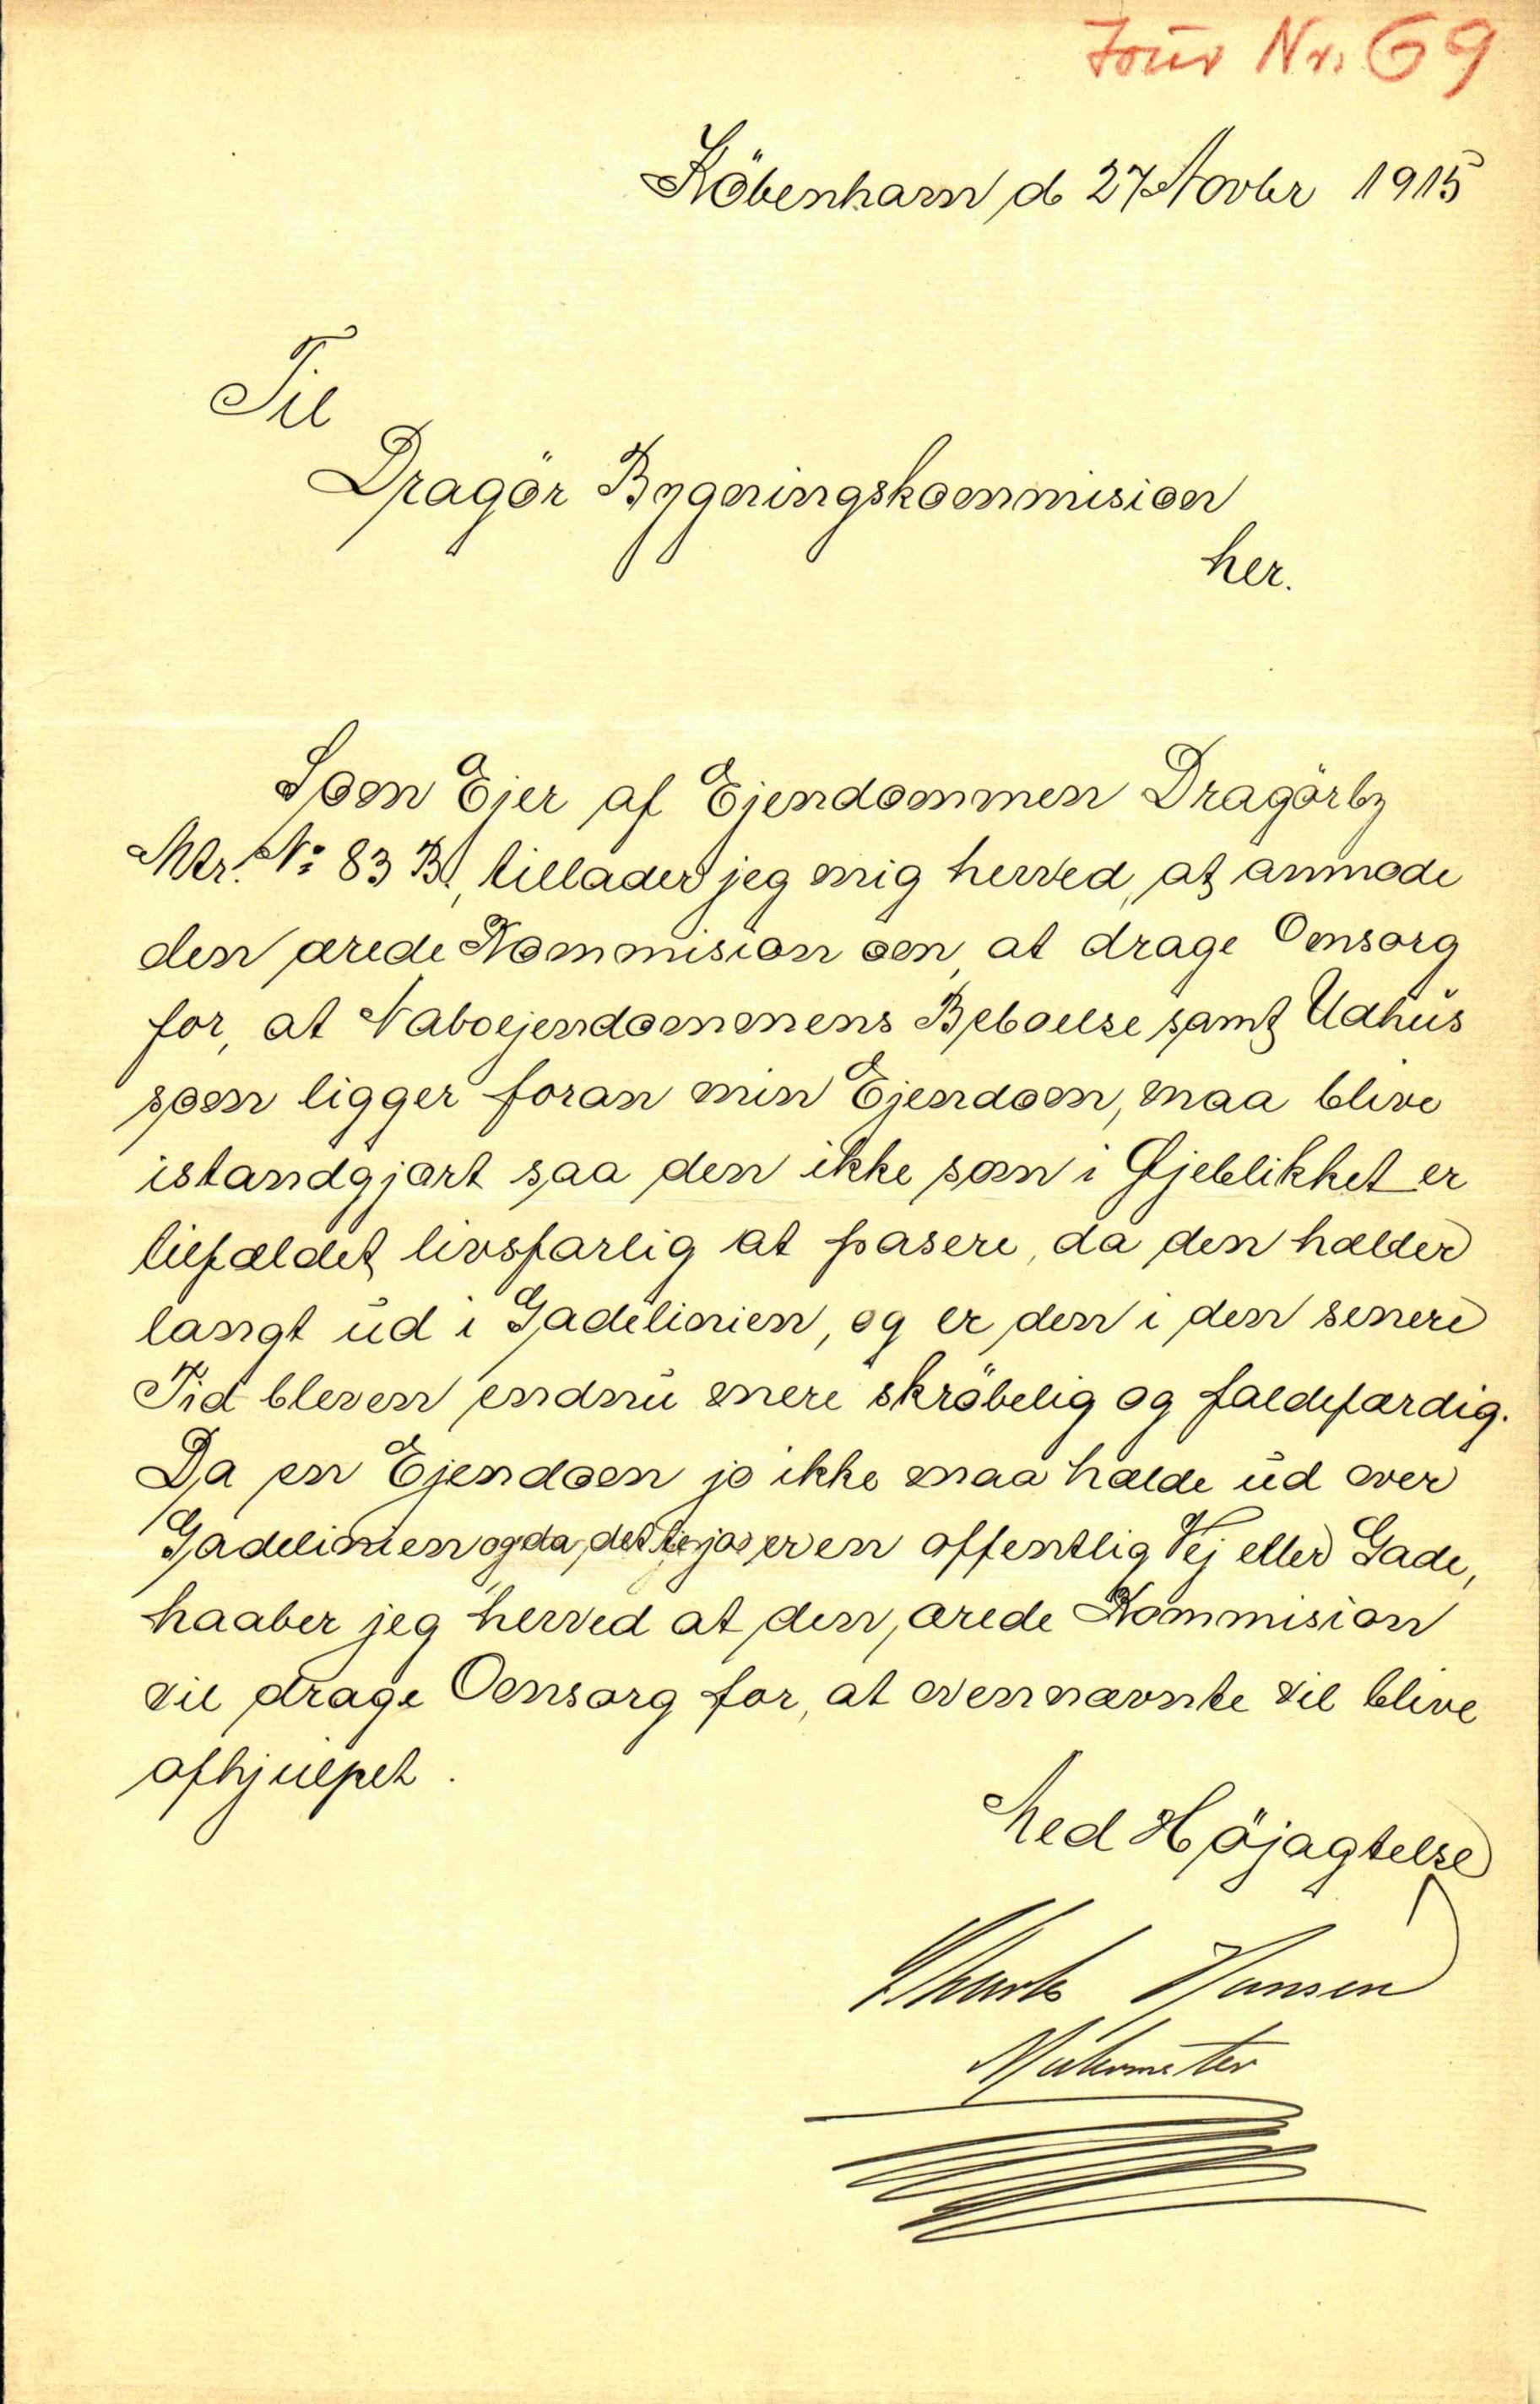 Jour Nr. 69
Köbenhavn d 27 Novbr 1915
Til
Dragör Bygningskommision
her.
Som Ejer af Ejendommen Dragörby
Mtr. No 83 B., tillader jeg mig herved, at anmode
den ærede Kommision om, at drage Omsorg
for, at Naboejendommens Beboelse samt Udhus
som ligger foran min Ejendom, maa blive
istandgjort saa den ikke som i Øjeblikket er
tilfældet livsfarlig at pasere, da den hælder
langt ud i Gadelinien, og er den i den senere
Tid bleven endnu mere skröbelig og faldefærdig.
Da en Ejendom jo ikke maa hælde ud over
Gadelinien og da det jo er en offentlig Vej eller Gade,
haaber jeg herved at den ærede Kommision
vil drage Omsorg for, at ovennævnte vil blive
afhjulpet.
Med Höjagtelse
Hansen